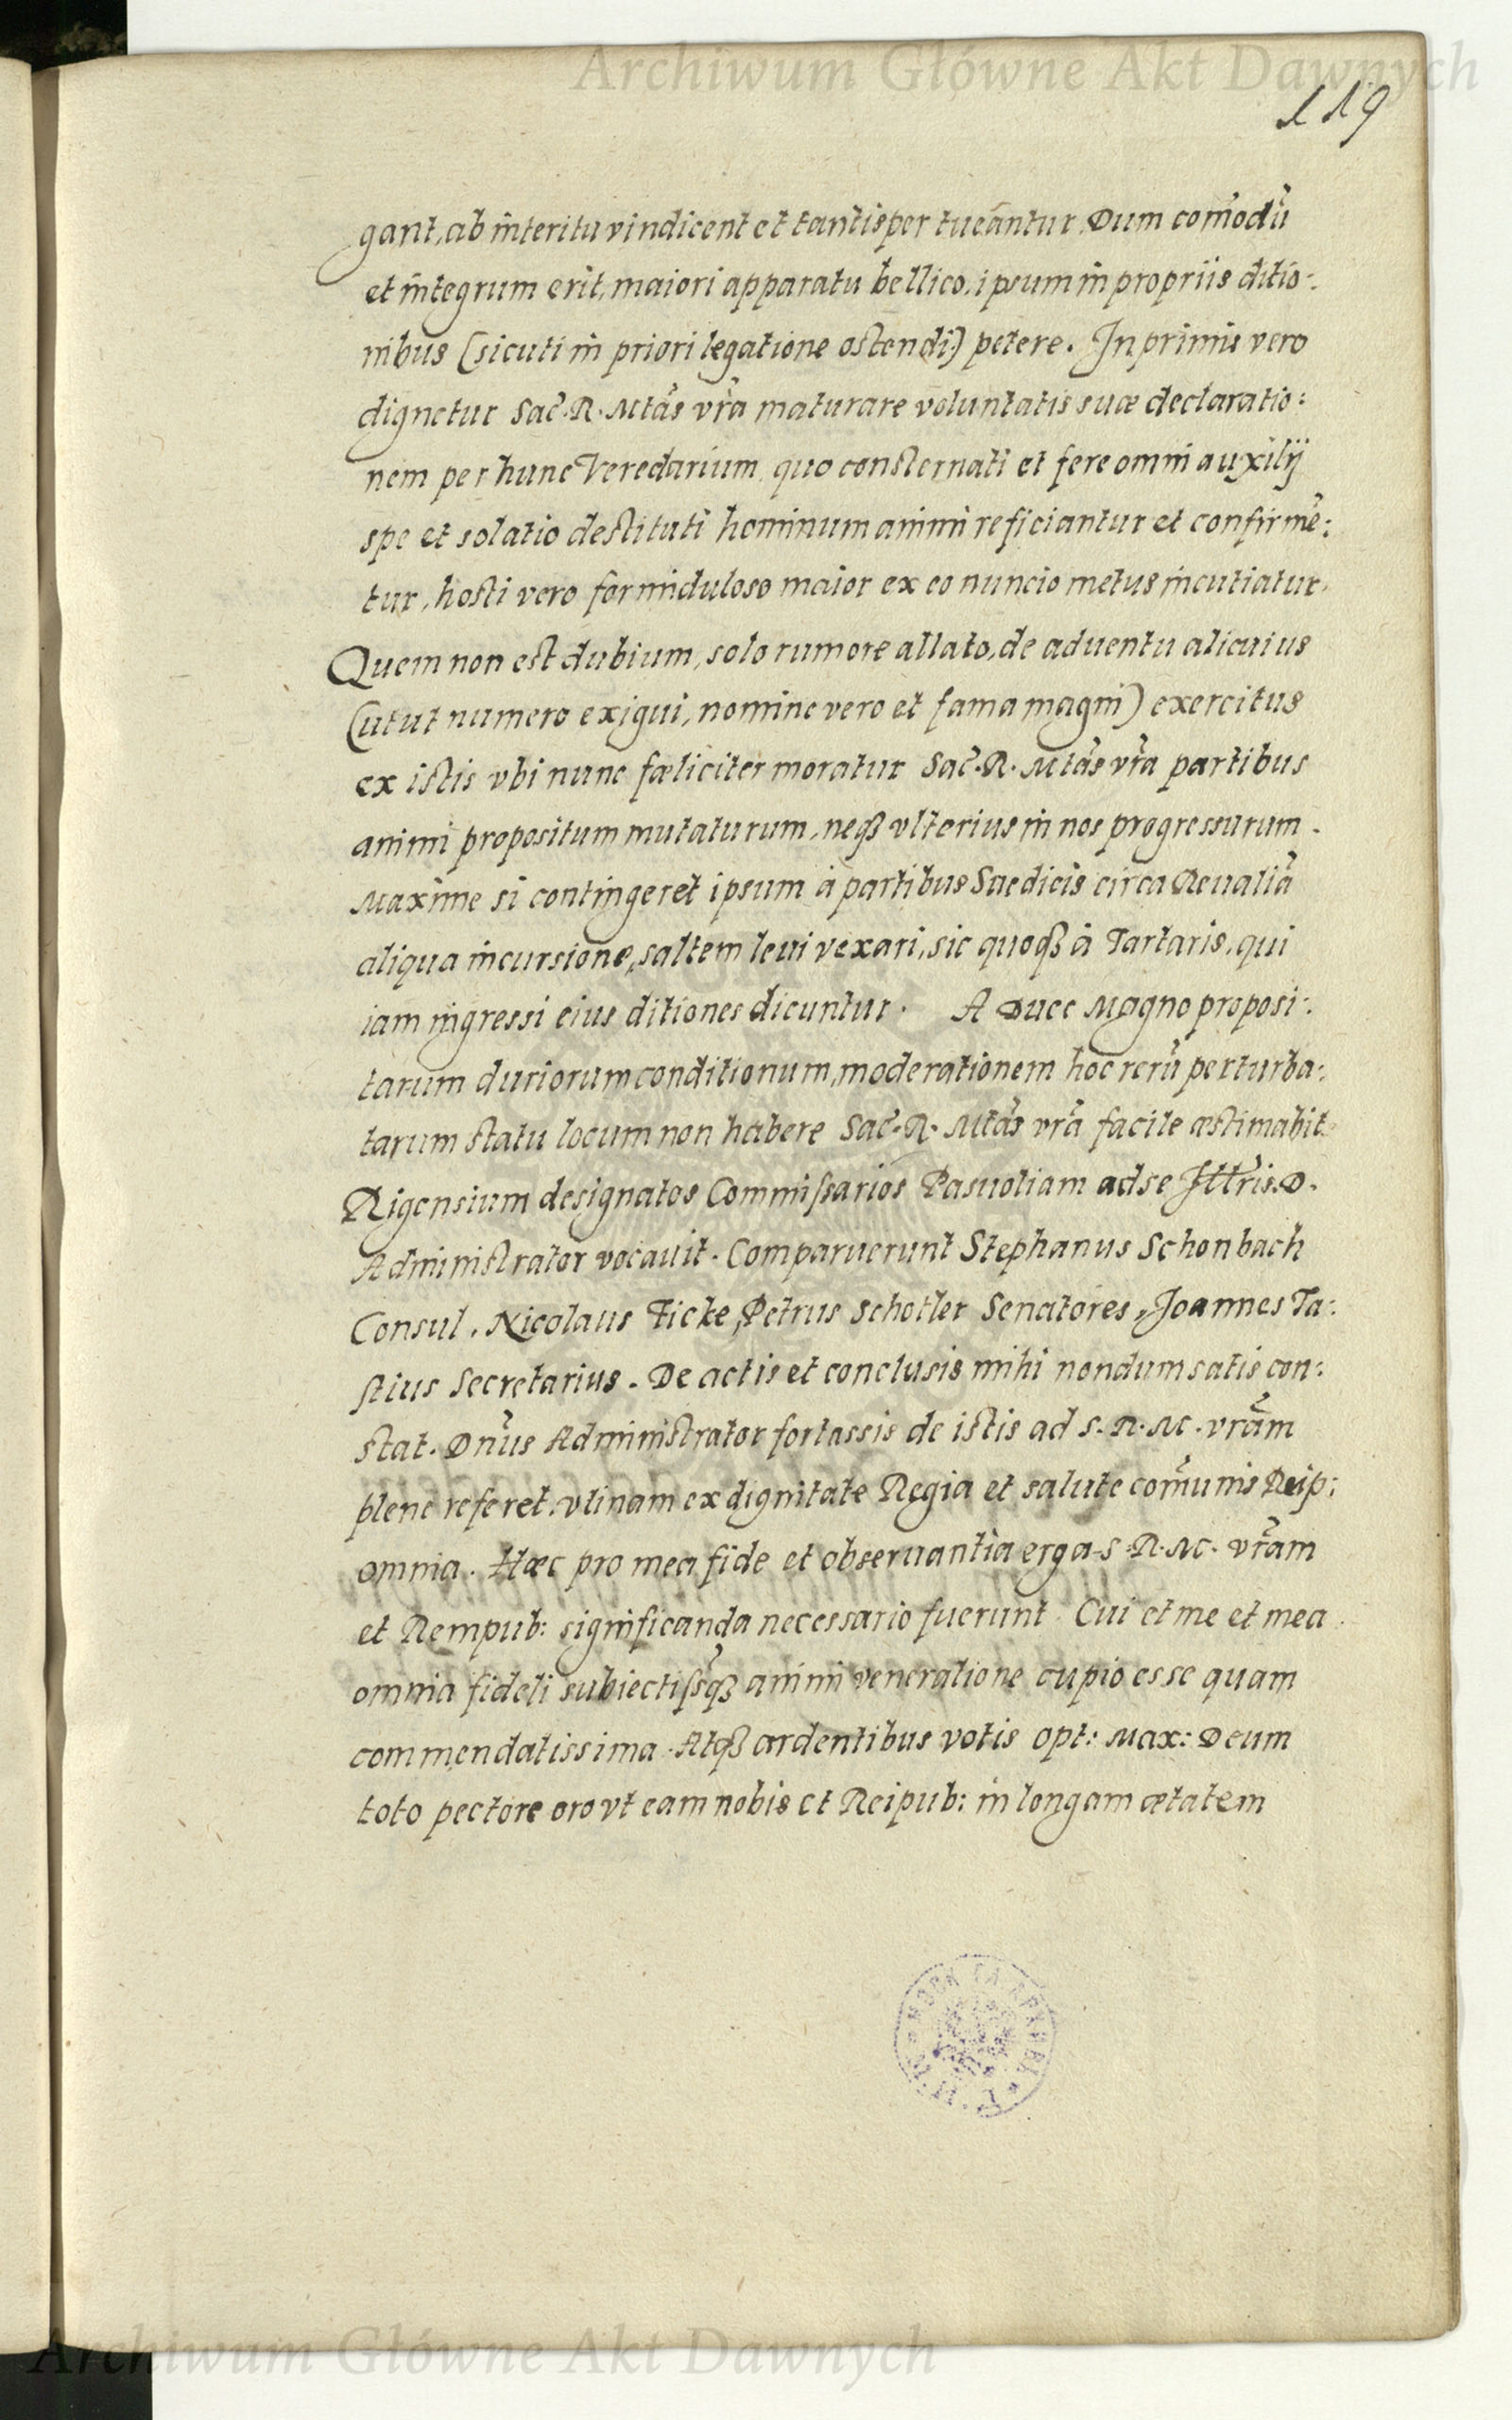 Archiwum Główne Akt Dawnych
119
gant, ab interitu vindicent et tantisper tueantur. Dum com̃odũ
et integrum erit, maiori apparatu bellico, ipsum in propriis ditio-
nibus (sicuti in priori legatione ostendi) petere. In primis vero
dignetur Sac̃. R. Mtãs vr̃a maturare voluntatis suæ declaratio:
nem per hunc Veredarium, quo consternati et fere omni auxilij
spe et solatio destituti hominum animi reficiantur et confirmẽ:
tur, hosti vero formiduloso maior ex eo nuncio metus incutiatur.
Quem non est dubium, solo rumore allato, de aduentu alicuius
(utut numero exigui, nomine vero et fama magni) exercitus
ex istis vbi nunc fœliciter moratur Sac̃. R. Mtãs vr̃a partibus
animi propositum mutaturum, neqȝ vlterius in nos progressurum.
Maxime si contingeret ipsum à partibus Suedicis circa Reualiã
aliqua incursione, saltem leui vexari, sic quoqȝ à Tartaris, qui
iam ingressi eius ditiones dicuntur. A Duce Magno proposi:
tarum duriorum conditionum, moderationem hoc rerũ perturba:
tarum statu locum non habere Sac̃. R. Mtãs vr̃a facile æstimabit.
Rigensium designatos Commissarios Pasuoliam ad se Illr̃is. D.
Administrator vocauit. Comparuerunt Stephanus Schonbach
Consul, Nicolaus Ficke, Petrus Schotler Senatores, Joannes Ta:
stius Secretarius. De actis et conclusis mihi nondum satis con:
stat. Dñus Administrator fortassis de istis ad S. R. M. vr̃am
plene referet, vtinam ex dignitate Regia et salute com̃unis Reip:
omnia. Hæc pro mea fide et obseruantia erga S. R. M. vr̃am
et Rempub: significanda necessario fuerunt. Cui et me et mea
omnia fideli subiectissq̃ȝ animi veneratione cupio esse quam
commendatissima. Atqȝ ardentibus votis Opt: Max: Deum
toto pectore oro vt eam nobis et Reipub: in longam ætatem
Archiwum Główne Akt Dawnych